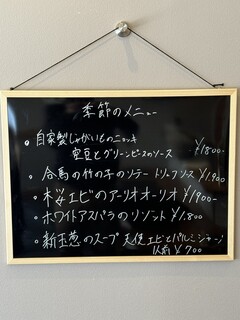 季節のメニュー
• 自家製じゃがいものニョッキ
空豆とグリーンピースのソース
¥1800-
• 合馬の竹の子のソテー トリュフソース ¥1,900
• 桜エビのアーリオオーリオ ¥1900-
• ホワイトアスパラのリゾット ¥1,800
• 新玉葱のスープ 天使エビとパルミジャーノ
1人前 ¥700